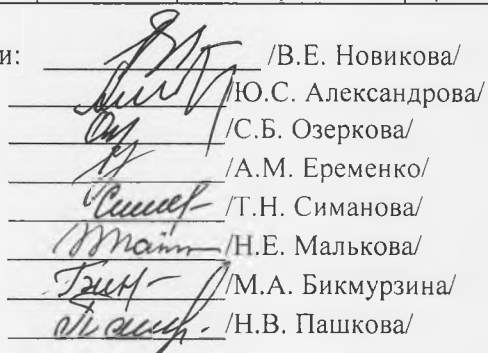 и: /В.Е. Новикова/
/Ю.С. Александрова/
/С.Б. Озеркова/
/А.М. Еременко/
/Т.Н. Симанова/
/Н.Е. Малькова/
/М.А. Бикмурзина/
/Н.В. Пашкова/